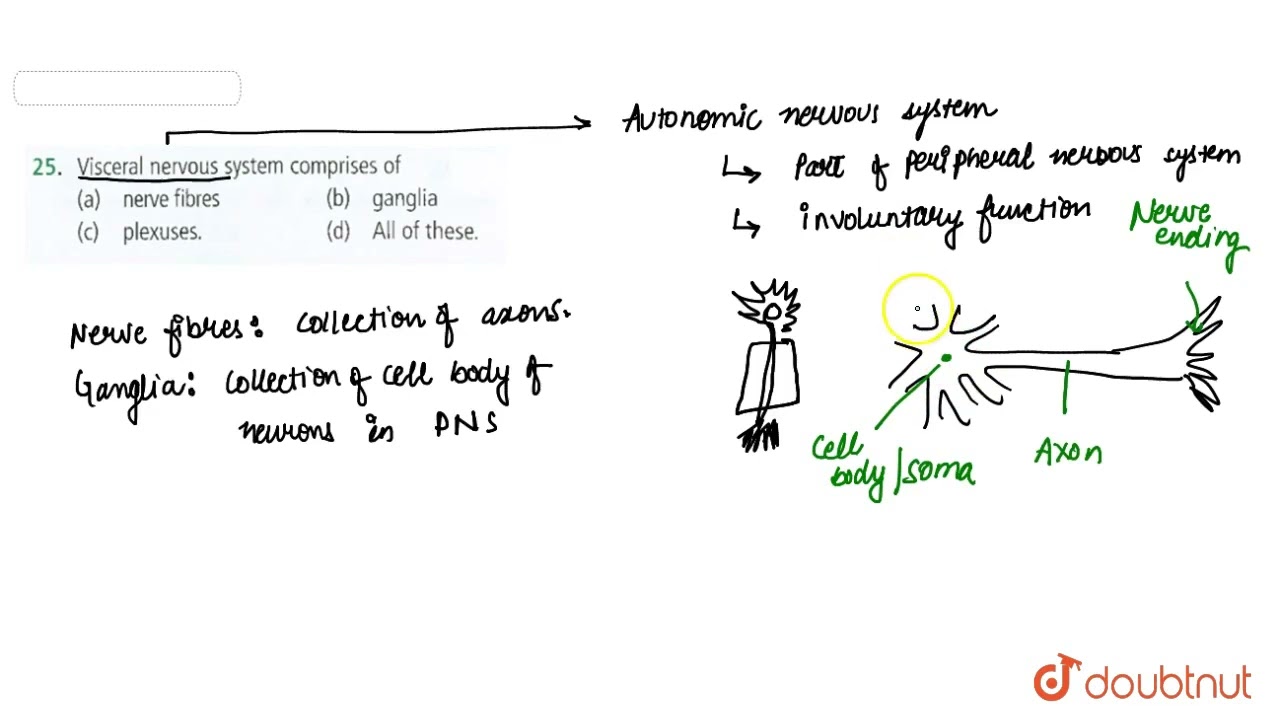 Autonomic nervous system
↳ Part of Peripheral nervous system
↳ involuntary function
25. Visceral nervous system comprises of
(a) nerve fibres (b) ganglia
(c) plexuses. (d) All of these.
Nerve fibres: Collection of axons.
Ganglia: Collection of cell body of
neurons in PNS
Nerve
ending
Cell
body/soma
Axon
doubtnut